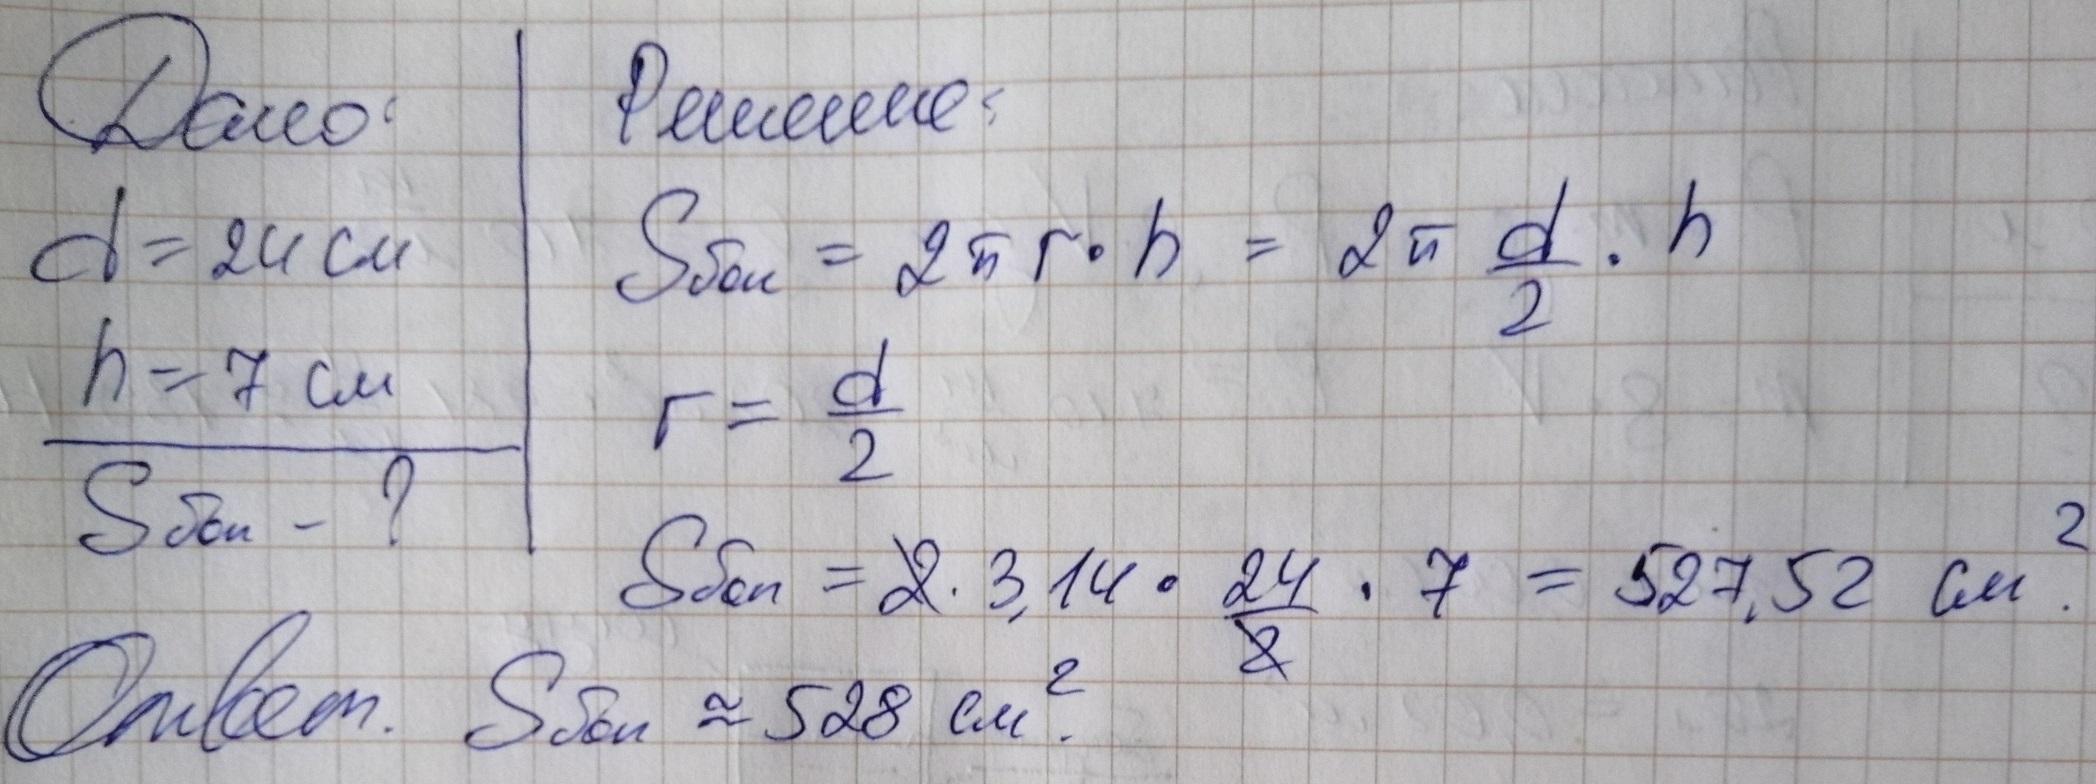 Дано:
d = 24 см
h = 7 см
Sбок - ?
Решение:
Sбок = 2π r · h = 2π d/2 · h
r = d/2
Sбок = 2 · 3,14 · 24/2 · 7 = 527,52 см².
Ответ. Sбок ≈ 528 см².